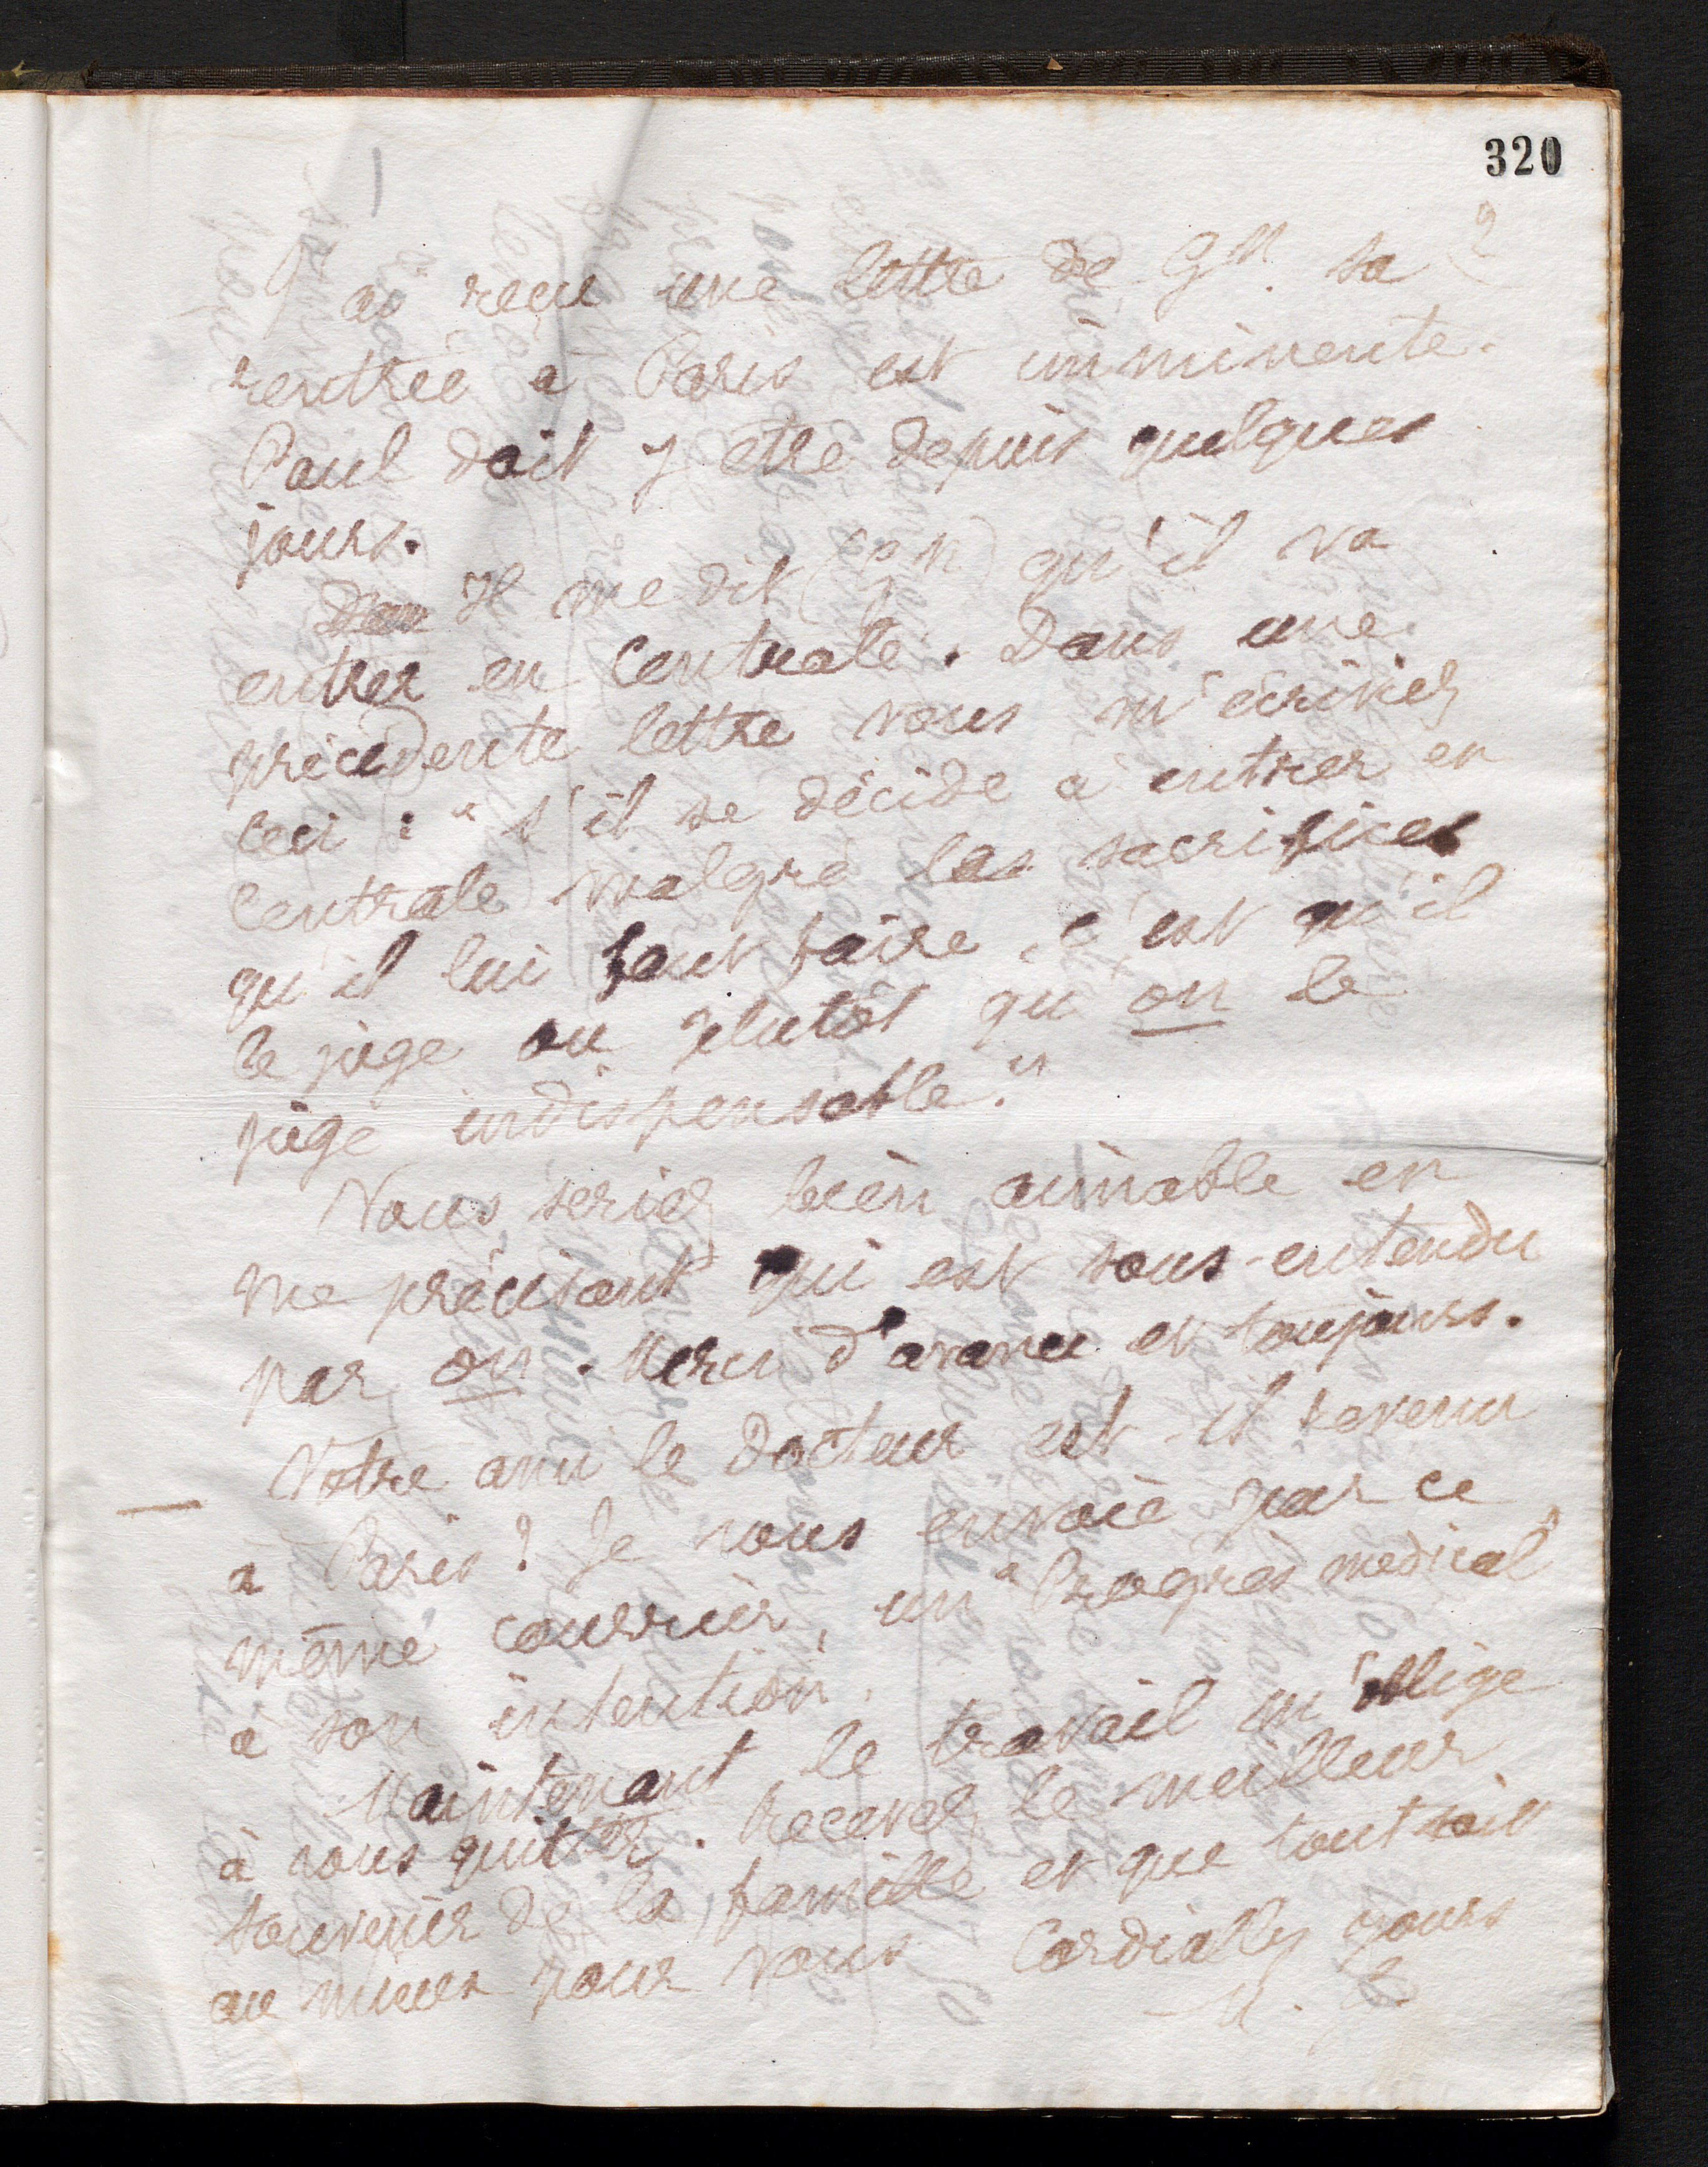 320
2
J'ai reçu une lettre de Gn. sa
rentrée à Paris est imminente.
Paul doit y etre depuis quelques
jours.
Il me dit (gn) qu'il va
entrer en Centrale. Dans une
précédente lettre vous m'écriviez
ceci : "s'il se décide à entrer en
Centrale malgré les sacrifices
qu'il lui faut faire, c'est qu'il
le juge ou plutôt qu'on le
juge indispensable."
Vous seriez bien aimable en
me précisant qui est sous-entendu
par on. Merci d'avance et toujours.
Votre ami le Docteur est-il revenu
à Paris ? Je vous envoie par ce
même courrier, un "Progrès medical"
à son intention.
Maintenant le travail m'oblige
à vous quitter. Recevez le meilleur
souvenir de la famille et que tout soit
au mieux pour vous Cordially yours
M.